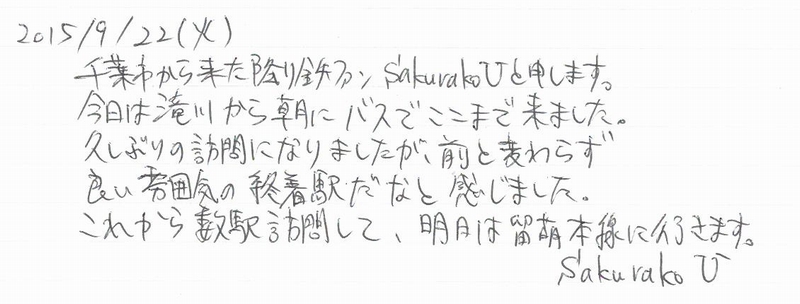 2015/9/22(火)
千葉市から来た降り鉄ファン SakurakoUと申します。
今日は滝川から朝にバスでここまで来ました。
久しぶりの訪問になりましたが、前と変わらず
良い雰囲気の終着駅だなと感じました。
これから数駅訪問して、明日は留萌本線に行きます。
Sakurako U